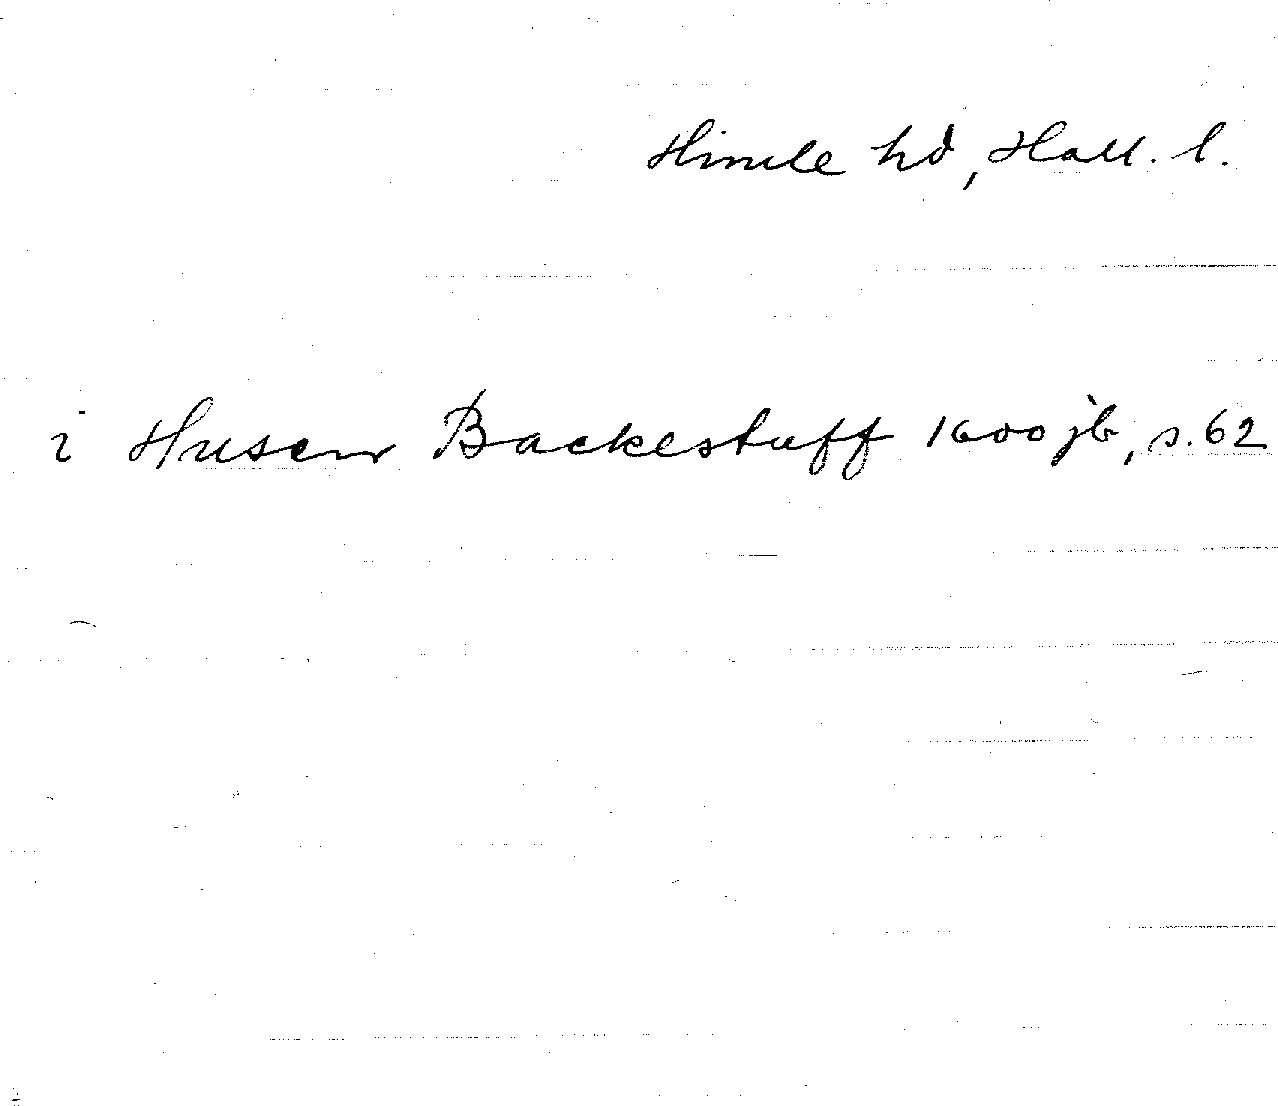 Himle hd, Hall. l.
i Husem Backestuff 1600 jb, s. 62